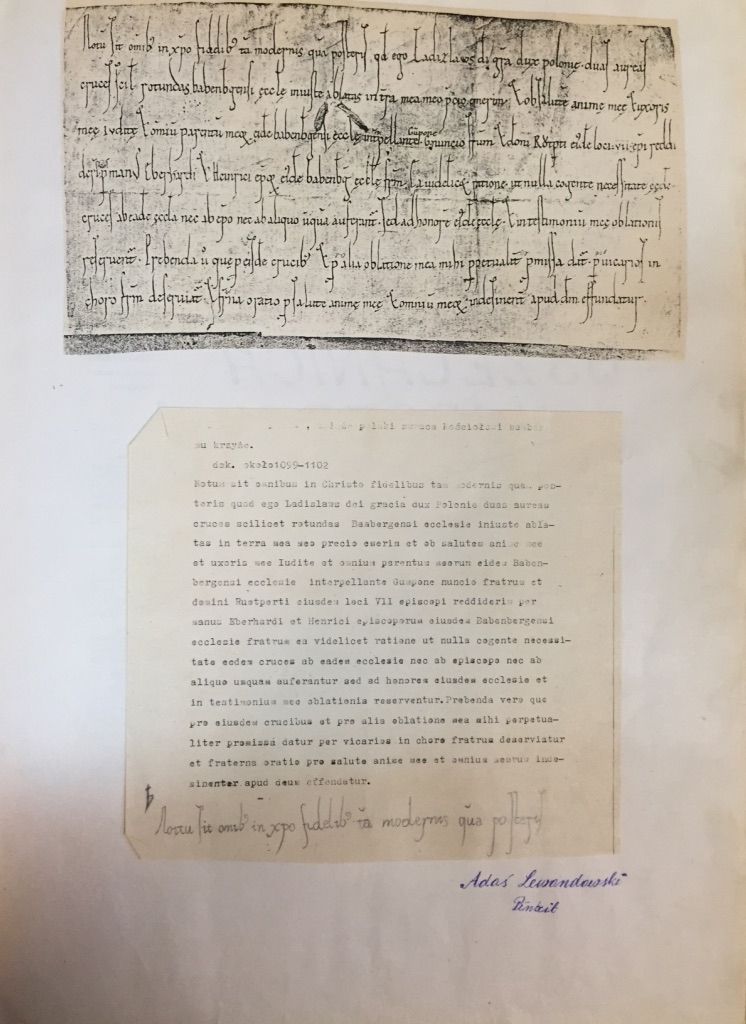 Notu sit omib' in xpo fidelib' tā modernis quā posteris, qd ego Ladislaus di gra dux polonie duas aureas
cruces scil rotundas babenbgensi eccle iniuste ablatas in tra mea meo pcio
mee iudite omiu parentu meoʒ eide babenbgensi eccle intpellante Gūpone nuncio frum
man' Eberhardi Heinrici epoʒ eide babenbg eccle frm. Ea videlicet ratione ut nulla cogente necessitate eede
cruces ab eade eccla nec ab epo nec ab aliquo uqua auferant. sed ad honore eide eccle in testimoniu mee oblationis
reseruent. Prebenda u que p eisde crucib' p alia oblatione mea mihi ppetualit pmissa dat. p uicarios in
choro frm deseruiat. frna oratio p salute anime mee omniu meoʒ indesinent apud dm effundatur.
kościołowi
mu krzyże.
dok. około 1099-1102
Notum sit omnibus in Christo fidelibus tam modernis quam pos-
teris quod ego Ladislaus dei gracia dux Polonie duas aureas
cruces scilicet rotundas Bambergensi ecclesie iniuste abla-
tas in terra mea meo precio emerim et ob salutem anime mee
et uxoris mee Iudite et omnium parentum meorum eidem Baben-
bergensi ecclesie interpellante Gumpone nuncio fratrum et
domini Rustperti eiusdem loci VII episcopi reddiderim per
manus Eberhardi et Henrici episcoporum eiusdem Babenbergensi
ecclesie fratrum ea videlicet ratione ut nulla cogente necessi-
tate eedem cruces ab eadem ecclesie nec ab episcopo nec ab
aliquo usquam auferantur sed ad honorem eiusdem ecclesie et
in testimonium mee oblationis reserventur. Prebenda vero que
pro eiusdem crucibus et pro alia oblatione mea mihi perpetua-
liter promissa datur per vicarios in choro fratrum deserviatur
et fraterna oratio pro salute anime mee et omnium meorum inde-
sinenter apud deum effundatur.
Notu sit omib' in xpo fidelib' tā modernis quā posteris
Adaś Lewandowski
Pinxit